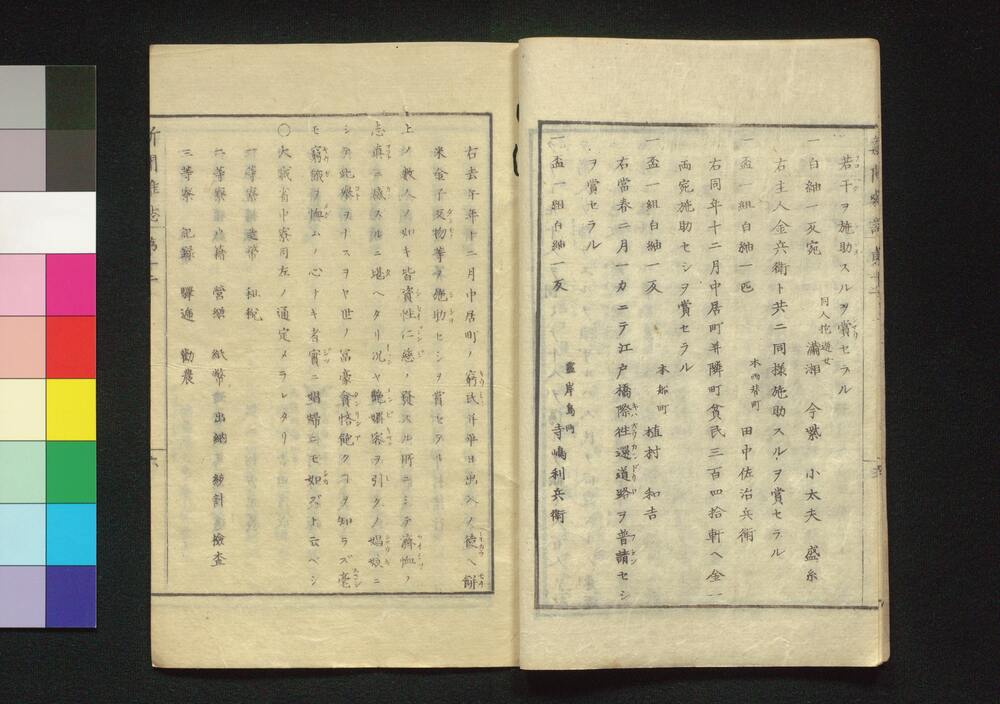 若干ヲ施助スルヲ賞セラル
同人抱遊女
一白紬一反宛 瀟湘 今紫 小太夫 盛糸
右主人金兵衛ト共ニ同様施助スルヲ賞セラル
本両替町
一盃一組白紬一匹 田中佐治兵衛
右同年十二月中居町并隣町貧民三百四拾軒ヘ金一
両宛施助セシヲ賞セラル
本船町
一盃一組白紬一反 植村 和吉
右當春二月一カニテ江戸橋際往還道路ヲ普請セシ
ヲ賞セラル
霊岸島町
一盃一組白紬一反 寺嶋利兵衛
右去午年十二月中居町ノ窮民并平日出入ノ者ヘ餅
米金子反物等ヲ施助セシヲ賞セラル
上ノ数人ノ如キ皆資性仁慈ノ発スル所ニシテ済恤ノ
志真ニ感スルニ堪ヘタリ况ヤ艶媚客ヲ引クノ娼妓ニ
シテ此挙ヲナスヲヤ世ノ冨豪貪悋飽クコヲ知ラズ毫
モ窮餓ヲ恤ムノ心ナキ者實ニ娼婦ニモ如ズト云ベシ
〇大蔵省中寮司左ノ通定メラレタリ
一等寮 造幣 租税
二等寮 戸籍 營繕 紙幣 出納 統計 檢査
三等寮 記録 驛逓 勸農
新聞雑誌 第十二 六